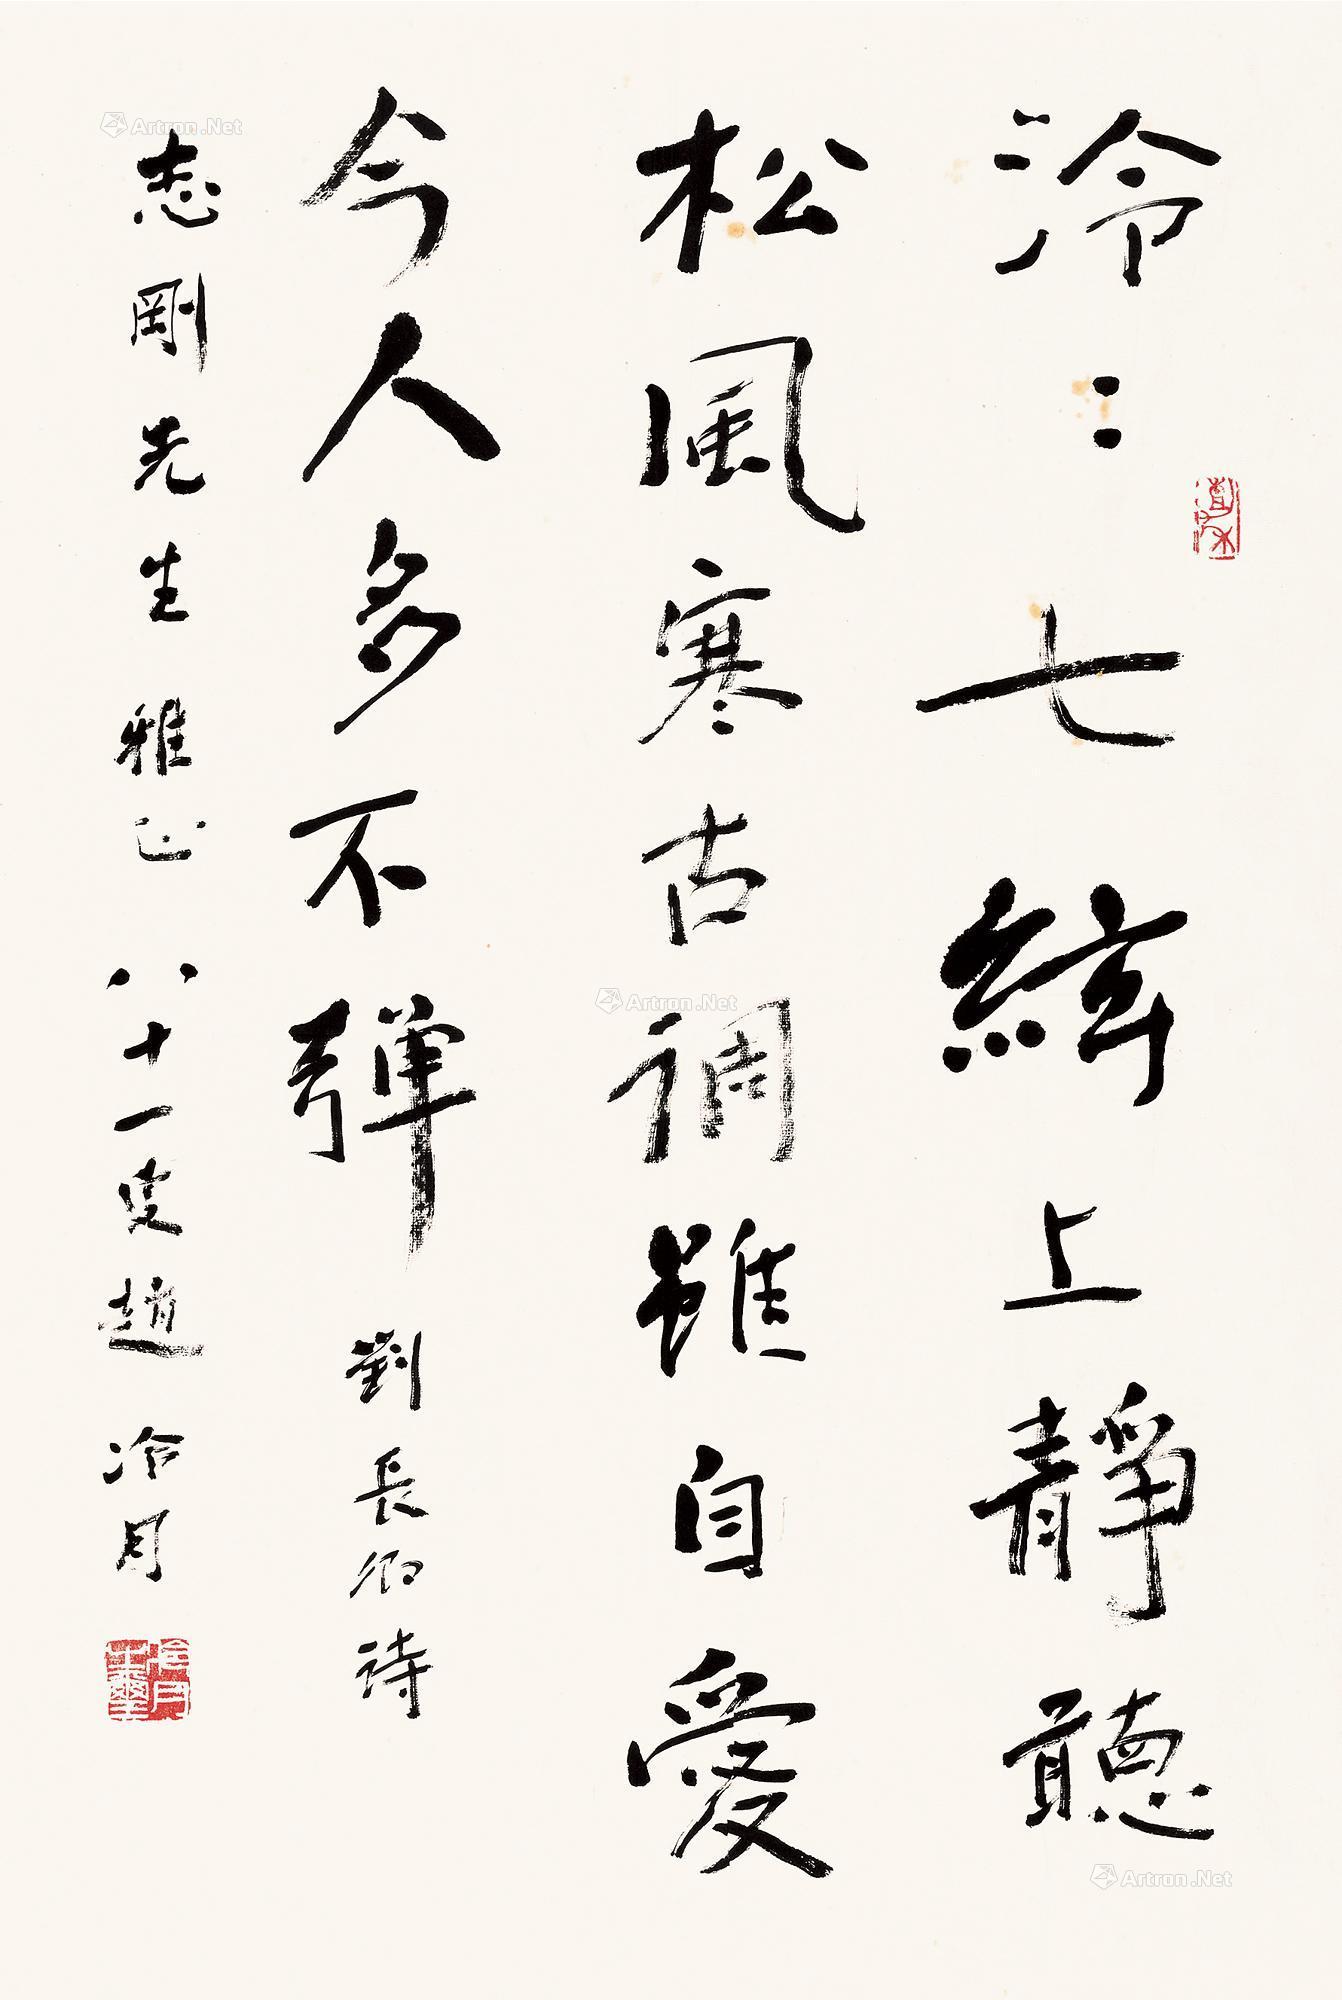 泠〻七絃上靜聽
松風寒古調雖自愛
今人多不彈 劉長卿詩
志剛先生雅正 八十一叟趙冷月
冷月
Artron.Net
Artron.Net
Artron.Net